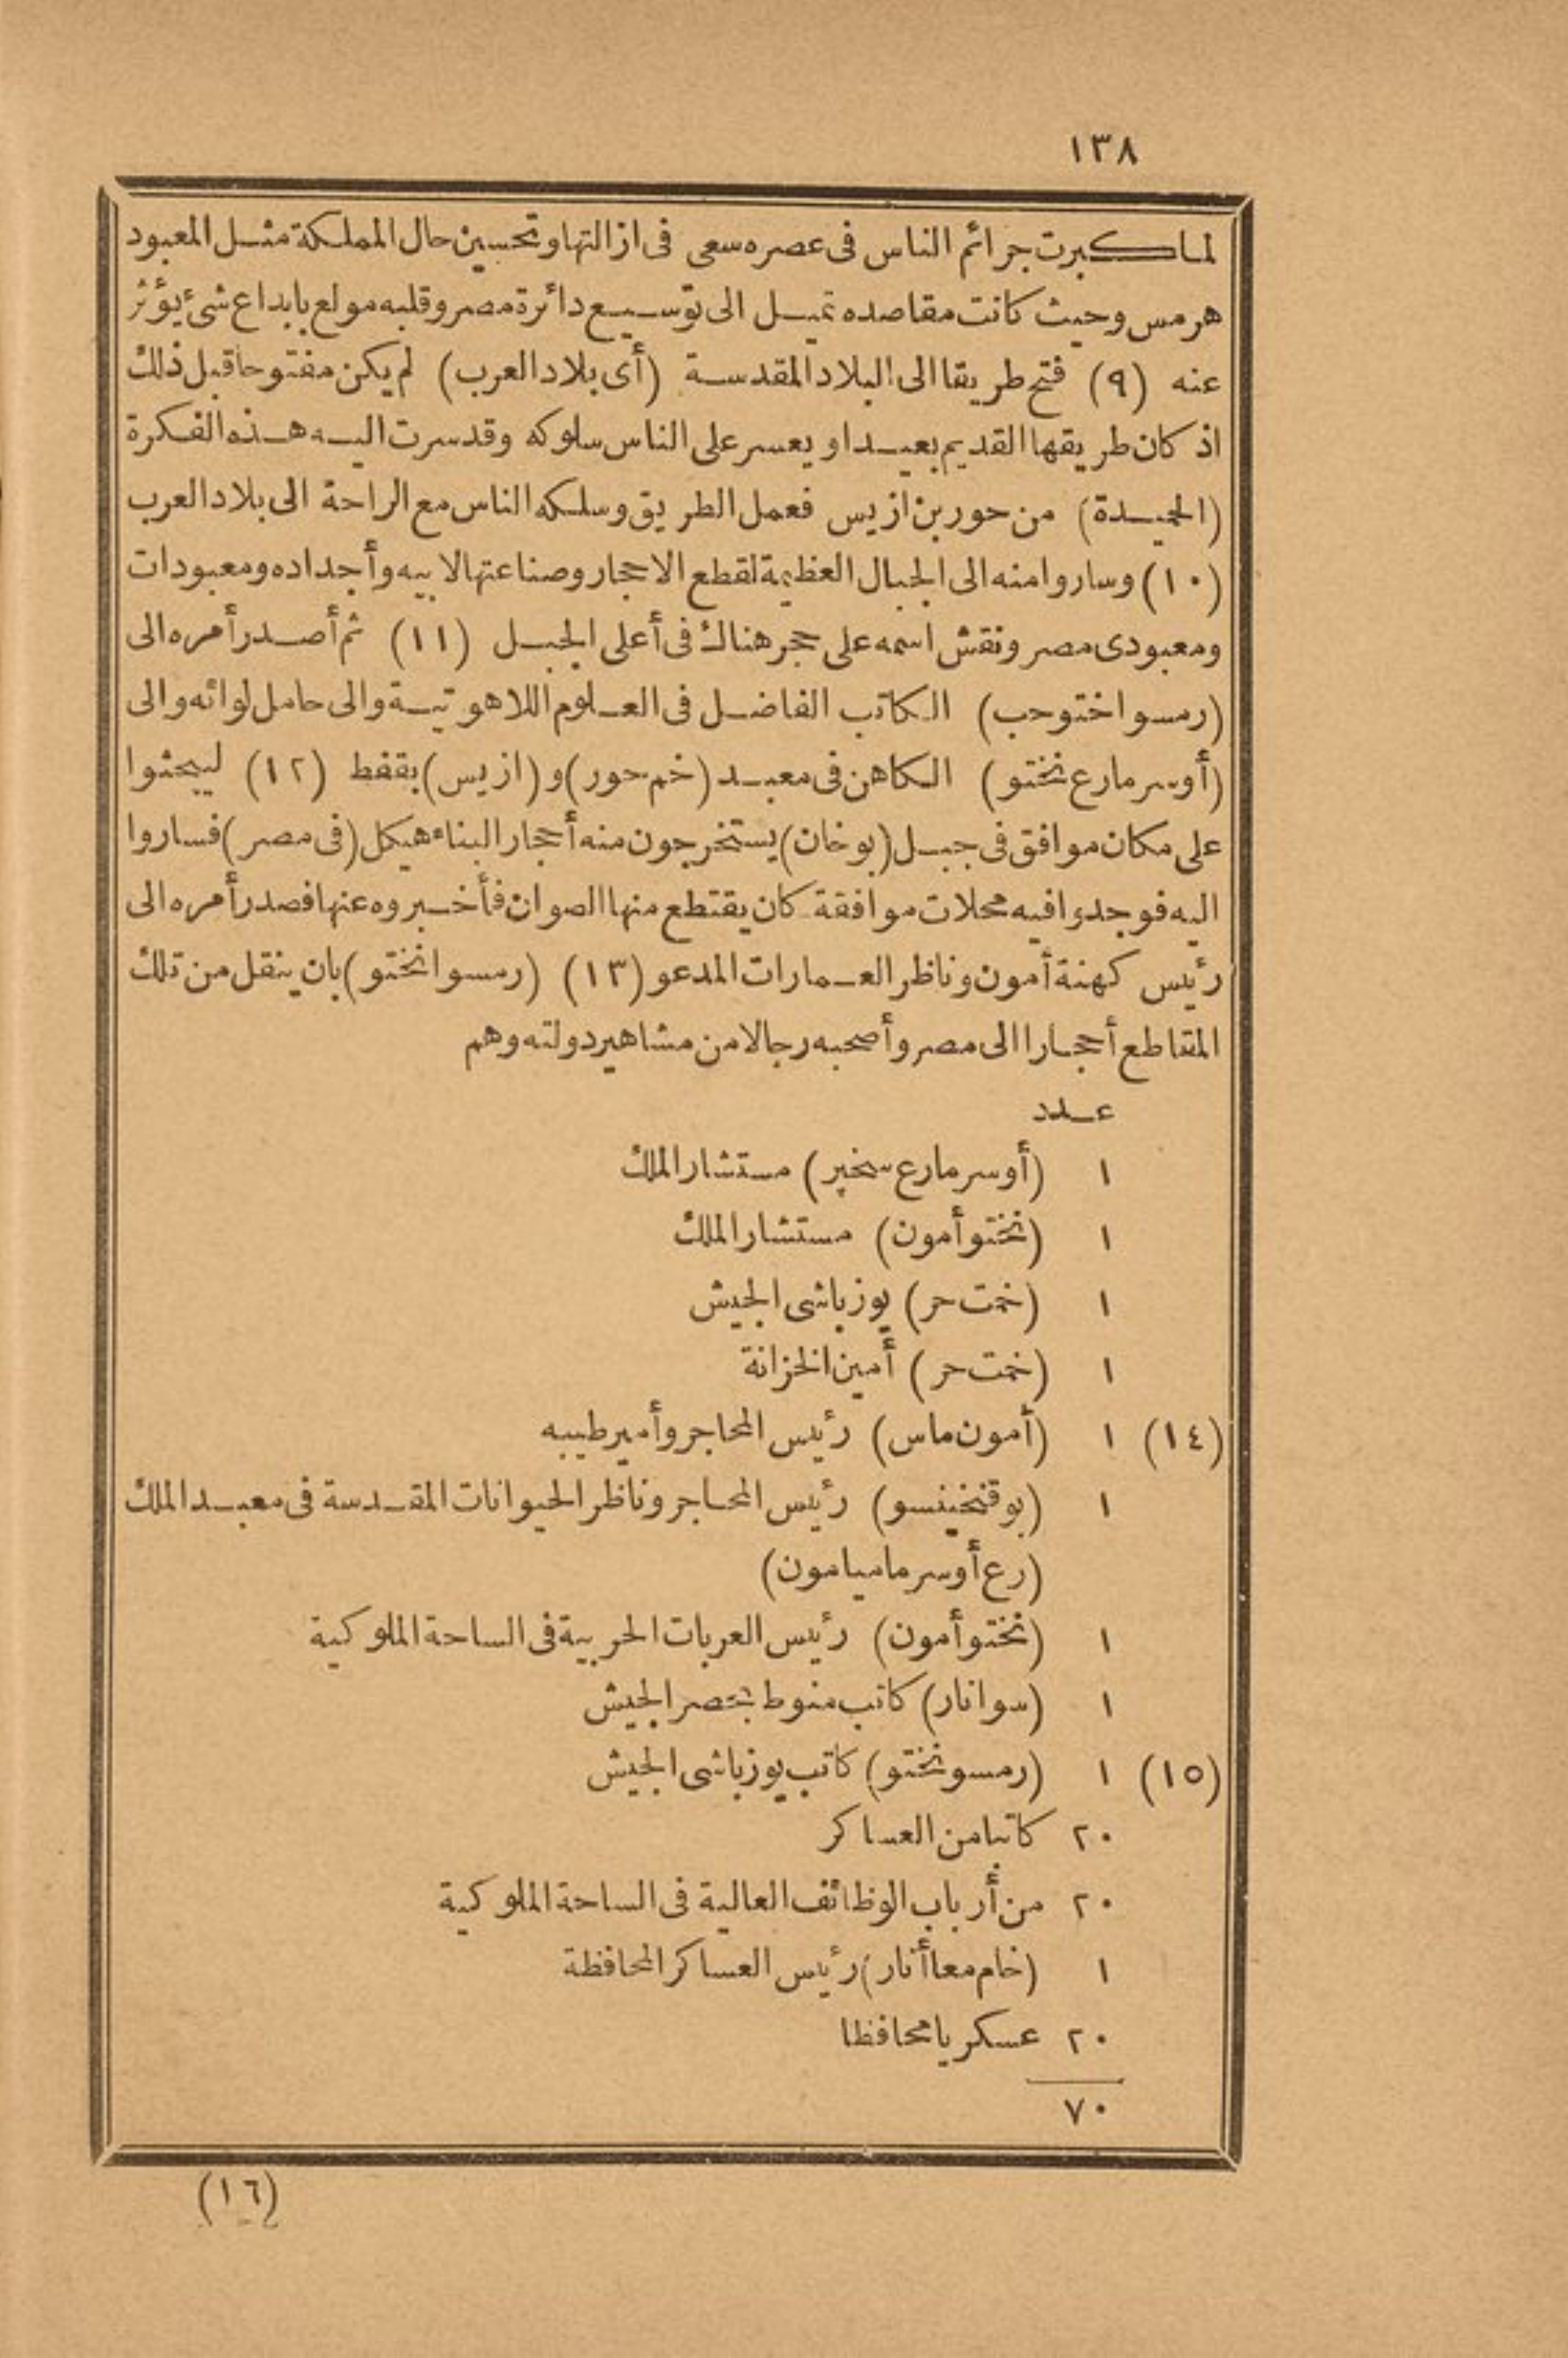 ١٣٨
لما كبرت جرائم الناس فى عصره سعى فى ازالتها وتحسين حال المملكة مثل المعبود
هرمس وحيث كانت مقاصده تميل الى توسيع دائرة مصر وقلبه مولع بابداع شئ يؤثر
عنه (٩) فتح طريقا الى البلاد المقدسة (أى بلاد العرب) لم يكن مفتوحا قبل ذلك
اذ كان طريقها القديم بعيدا ويعسر على الناس سلوكه وقد سرت اليه هذه الفكرة
(الجيدة) من حور بن ازيس فعمل الطريق وسلكه الناس مع الراحة الى بلاد العرب
(١٠) وساروا منه الى الجبال العظيمة لقطع الاحجار وصناعتها لابيه وأجداده ومعبودات
ومعبودى مصر ونقش اسمه على حجر هناك فى أعلى الجبل (١١) ثم أصدر أمره الى
(رمسو اختوحب) الكاتب الفاضل فى العلوم اللاهوتية والى حامل لوائه والى
(أوسرمارع نختو) الكاهن فى معبد (خم حور) و (ازيس) بقفط (١٢) ليبحثوا
على مكان موافق فى جبل (بوخان) يستخرجون منه أحجار البناء هيكل (فى مصر) فساروا
اليه فوجدوا فيه محلات موافقة كان يقتطع منها الصوان فأخبروه عنها فصدر أمره الى
رئيس كهنة أمون وناظر العمارات المدعو (١٣) (رمسو انختو) بان ينقل من تلك
المقاطع أحجارا الى مصر وأصحبه رجالا من مشاهير دولته وهم
عدد
١ (أوسرمارع سخپر) مستشار الملك
١ (نختو أمون) مستشار الملك
١ (خمت حر) يوزباشى الجيش
١ (خمت حر) أمين الخزانة
(١٤) ١ (أمون ماس) رئيس المحاجر وأمير طيبه
١ (بوقنخينسو) رئيس المحاجر وناظر الحيوانات المقدسة فى معبد الملك
(رع أوسرما ميامون)
١ (نختو أمون) رئيس العربات الحربية فى الساحة الملوكية
١ (سوانار) كاتب منوط بحصر الجيش
(١٥) ١ (رمسو نختو) كاتب يوزباشى الجيش
٢٠ كاتبا من العساكر
٢٠ من أرباب الوظائف العالية فى الساحة الملوكية
١ (خام معا أنار) رئيس العساكر المحافظة
٢٠ عسكريا محافظا
٧٠
(١٦)